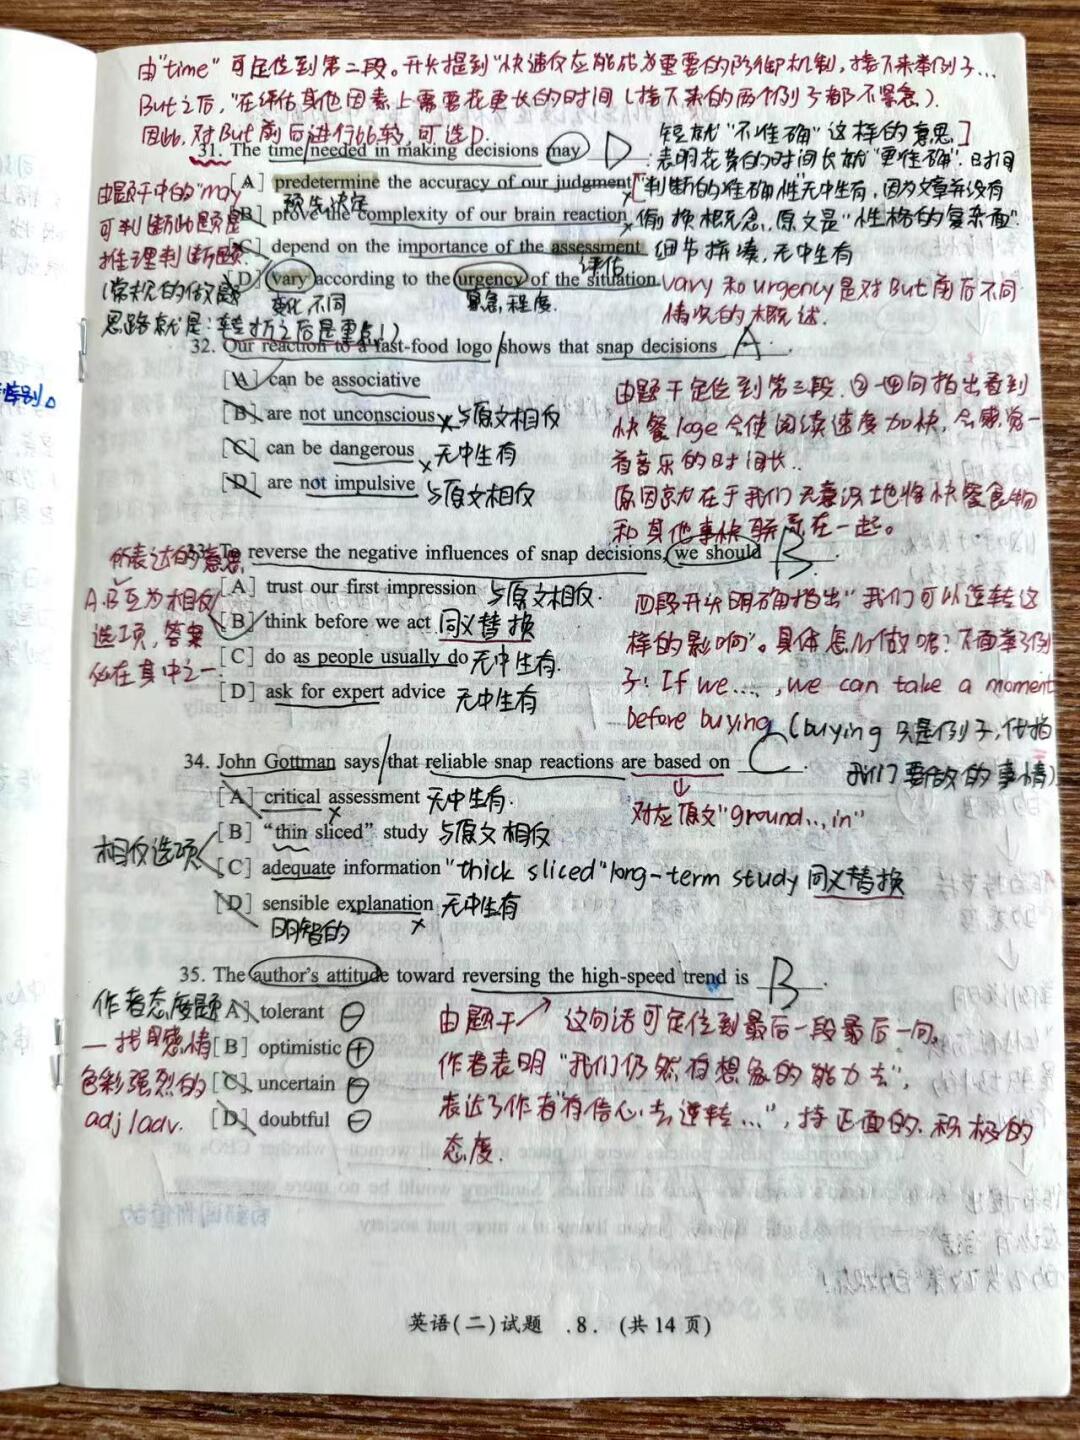 由"time"可定位到第二段。开头提到"快速反应能成为重要的防御机制,接下来举例子...
But之后,"在评估其他因素上需要花更长的时间(接下来的两个例子都不紧急).
因此,对But前后进行比较,可选D.
短就"不准确"这样的意思]
31. The time needed in making decisions may D.
表明花费的时间长就"更准确".时间
[A] predetermine the accuracy of our judgment
["判断的准确性"无中生有,因为文章并没有
预先决定
[B] prove the complexity of our brain reaction
偷换概念,原文是"性格的复杂面".
[C] depend on the importance of the assessment
细节拼凑,无中生有
评估
[D] vary according to the urgency of the situation
变化,不同
紧急,程度.
vary和urgency是对But前后不同
情况的概述.
由题干中的"may"
可判断此题是
推理判断题.
(常规的做题
思路就是:转折之后是重点!)
32. Our reaction to a fast-food logo shows that snap decisions A.
[A] can be associative
[B] are not unconscious × 与原文相反
[C] can be dangerous × 无中生有
[D] are not impulsive 与原文相反
由题干定位到第三段.②-④句指出看到
快餐logo会使阅读速度加快,会感觉
着音乐的时间长..
原因就在于我们无意识地将快餐食物
和其他事快联系在一起。
33. To reverse the negative influences of snap decisions, we should B.
所表达的意思
[A] trust our first impression 与原文相反.
[B] think before we act 同义替换
[C] do as people usually do 无中生有.
[D] ask for expert advice 无中生有
A.B互为相反
选项,答案
必在其中之一.
四段开头明确指出"我们可以逆转这
样的影响"。具体怎么做呢?下面举了例
子! If we...., we can take a moment
before buying
(buying只是例子,代指
我们要做的事情)
34. John Gottman says that reliable snap reactions are based on C.
对应原文"ground...in"
[A] critical assessment 无中生有.
[B] "thin sliced" study 与原文相反
[C] adequate information "thick sliced" long-term study 同义替换
[D] sensible explanation 无中生有
明智的
相反选项
35. The author's attitude toward reversing the high-speed trend is B.
[A] tolerant ⊖
[B] optimistic ⊕
[C] uncertain ⊖
[D] doubtful ⊖
作者态度题
一找具感情
色彩强烈的
adj/adv.
由题干 这句话可定位到最后一段最后一句,
作者表明"我们仍然有想象的能力去",
表达了作者"有信心去逆转...",持正面的.积极的
态度.
英语(二)试题 .8. (共14页)